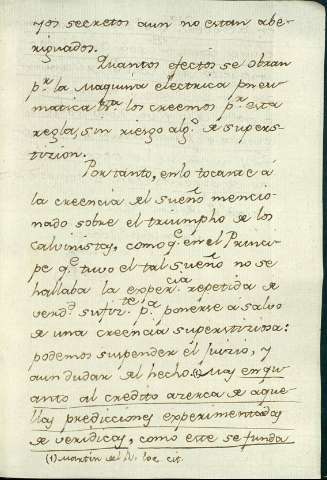 yos secretos aun no estan abe-
riguados.
Quantos efectos se obran
p.r la Maquina electrica pneu-
matica &.ta los creemos p.r esta
regla, sin riesgo alg.o de supers-
tizion.
Por tanto, en lo tocante á
la creencia del sueño mencio-
nado sobre el triumpho de los
Calvinistas, como q.e en el Princi-
pe q.e tuvo el tal sueño no se
hallaba la exper.cia repetida de
verd.d sufiz.te p.a ponerse á salvo
de una creencia superstiziosa:
podemos suspender el Juizio, y
aun dudar del hecho.(1) Mas en qu-
anto al credito azerca de aque-
llas predicciones experimentadas
de veridicas, como este se funda
(1) Martin del R. loc. cit.